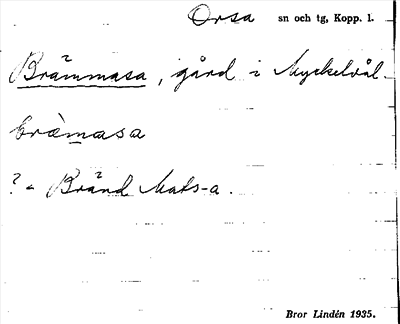 Orsa sn och tg, Kopp. l.
Brämmasa, gård i Myckelvål-
bràmasa
? - Bränd Mats-a.
Bror Lindén 1935.